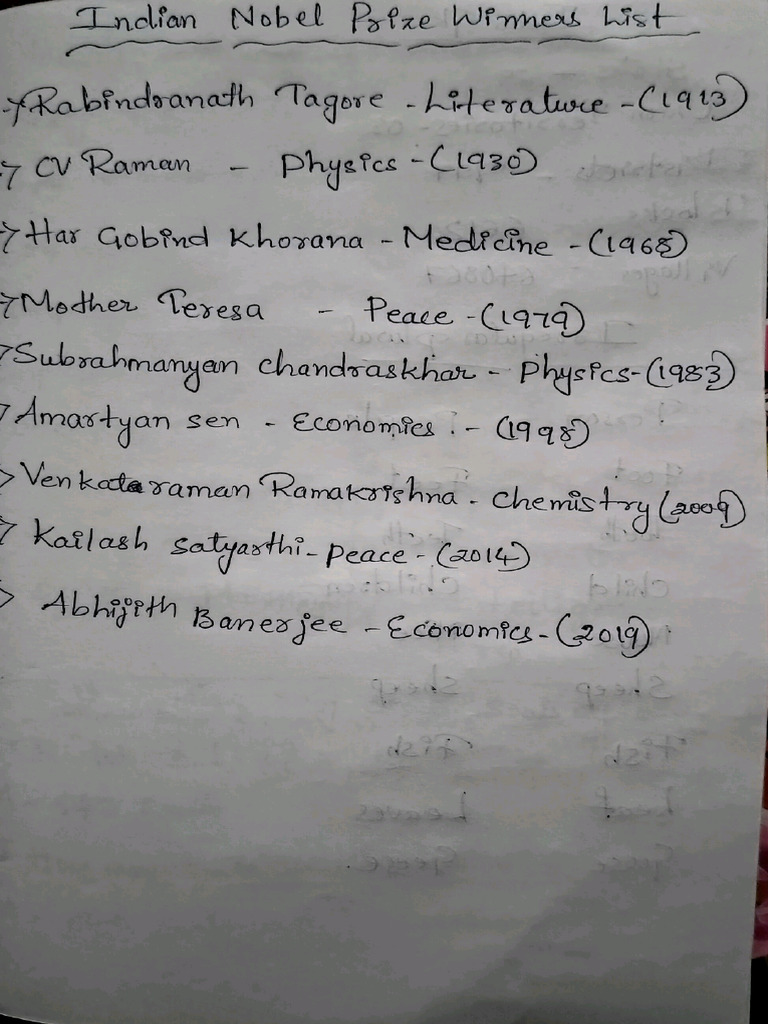 Indian Nobel Prize Winners List
→ Rabindranath Tagore - Literature - (1913)
→ CV Raman - Physics - (1930)
→ Har Gobind Khorana - Medicine - (1968)
→ Mother Teresa - Peace - (1979)
→ Subrahmanyan chandraskhar - Physics - (1983)
→ Amartyan sen - Economics - (1998)
→ Venkataraman Ramakrishna - chemistry (2009)
→ Kailash Satyarthi - Peace - (2014)
→ Abhijith Banerjee - Economics - (2019)